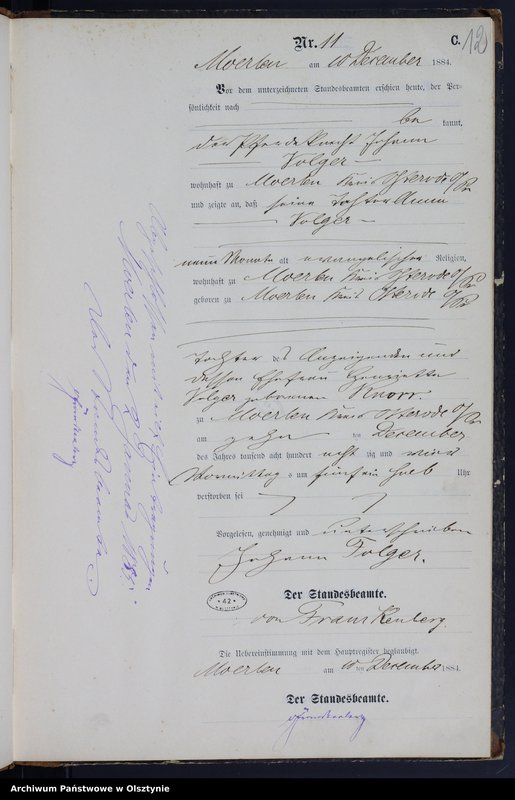 Nr. 11
C. 12
Moerlen am 10 December 1884.
Vor dem unterzeichneten Standesbeamten erschien heute, der Per-
sönlichkeit nach
be kannt,
der Pferdeknecht Johann
Folger
wohnhaft zu Moerlen Kreis Osterode O/Pr
und zeigte an, daß seine Tochter Anna
Folger
neun Monate alt evangelischer Religion,
wohnhaft zu Moerlen Kreis Osterode O/Pr
geboren zu Moerlen Kreis Osterode O/Pr
Tochter des Anzeigenden und
dessen Ehefrau Henriette
Folger geborenen Knorr.
zu Moerlen Kreis Osterode O/Pr
am zehn ten December
des Jahres tausend acht hundert acht zig und vier
Vormittags um fünfeinhalb Uhr
verstorben sei
Vorgelesen, genehmigt und unterschrieben
Johann Folger.
Der Standesbeamte.
von Frankenberg.
42
Die Uebereinstimmung mit dem Hauptregister beglaubigt.
Moerlen am 10 ten December 1884.
Der Standesbeamte.
Abgeschlossen mit
Moerlen den
Der Standesbeamte
Archiwum Państwowe w Olsztynie